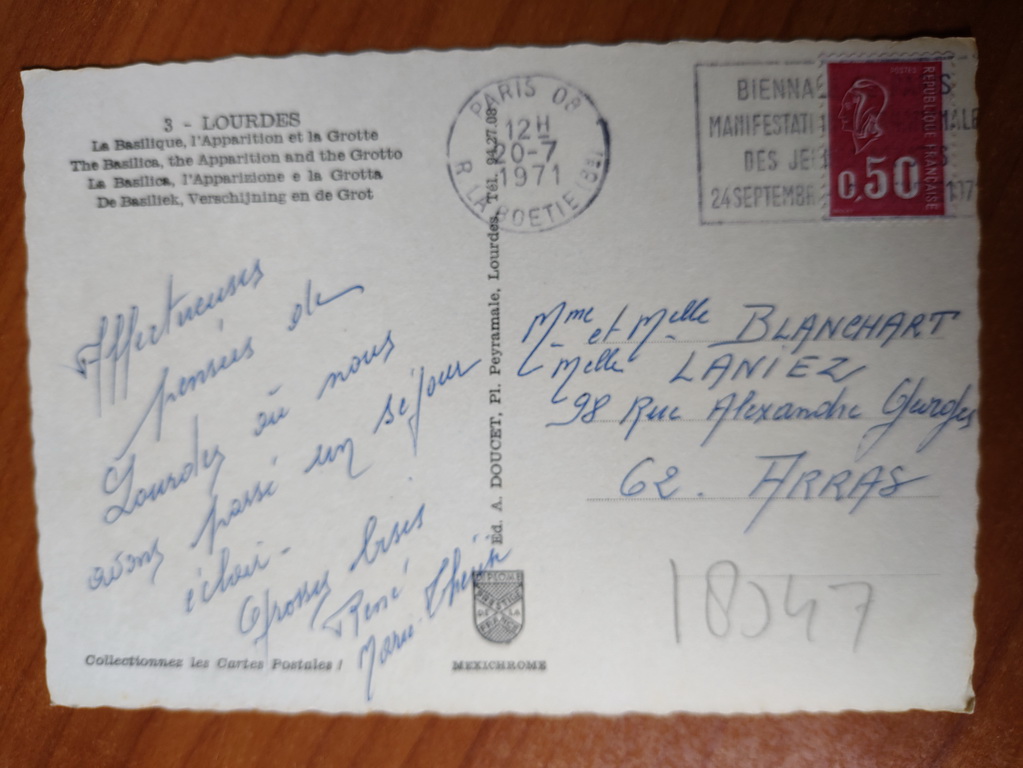 3 - LOURDES
La Basilique, l'Apparition et la Grotte
The Basilica, the Apparition and the Grotto
La Basilica, l'Apparizione e la Grotta
De Basiliek, Verschijning en de Grot
PARIS 08
12 H
20-7
1971
R. LA BOETIE (8E)
BIENNA
MANIFESTATI
DES JE
24 SEPTEMBR
POSTES
REPUBLIQUE FRANÇAISE
0,50
Affectueuses
pensées de
Lourdes où nous
avons passé un séjour
éclair -
Grosses bises
René
Marie. Thérèse
Ed. A. DOUCET, Pl. Peyramale, Lourdes, Tél. 94.27.08
Mme et Melle BLANCHART
Melle LANIEZ
98 Rue Alexandre Georges
62. ARRAS
18347
PRESTIGE
DE LA
FRANCE
Collectionnez les Cartes Postales !
MEXICHROME